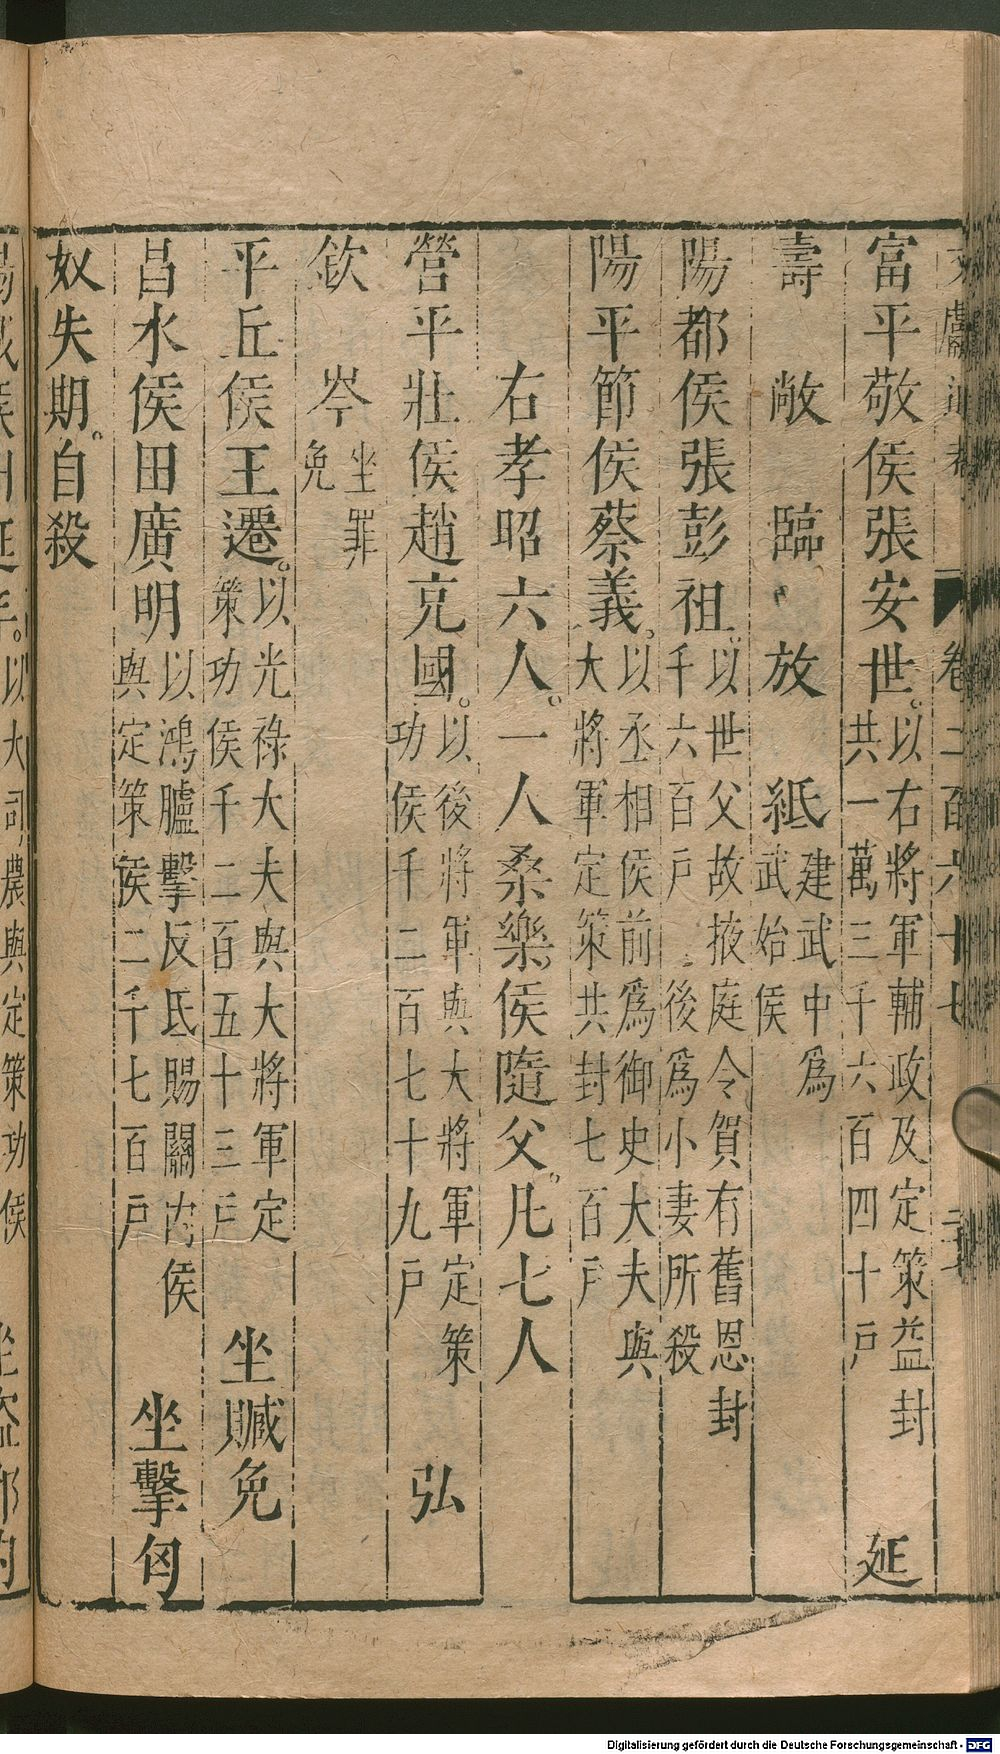 富平敬侯張安世。以右將軍輔政及定策益封共一萬三千六百四十戶　延
壽　敞　臨　放　紙建武中為武始侯
陽都侯張彭祖。以世父故掖庭令賀有舊恩封千六百戶後為小妻所殺
陽平節侯蔡義。以丞相侯前為御史大夫與大將軍定策共封七百戶
右孝昭六人。一人桑樂侯隨父。凡七人
營平壯侯趙充國。以後將軍與大將軍定策功侯千二百七十九戶　弘
欽　岑坐罪免
平丘侯王遷。以光祿大夫與大將軍定策功侯千二百五十三戶　坐贓免
昌水侯田廣明以鴻臚擊反氐賜關內侯與定策侯二千七百戶　坐擊匈
奴失期。自殺
以大司農與定策功侯
卷二百六十七
Digitalisierung gefördert durch die Deutsche Forschungsgemeinschaft - DFG